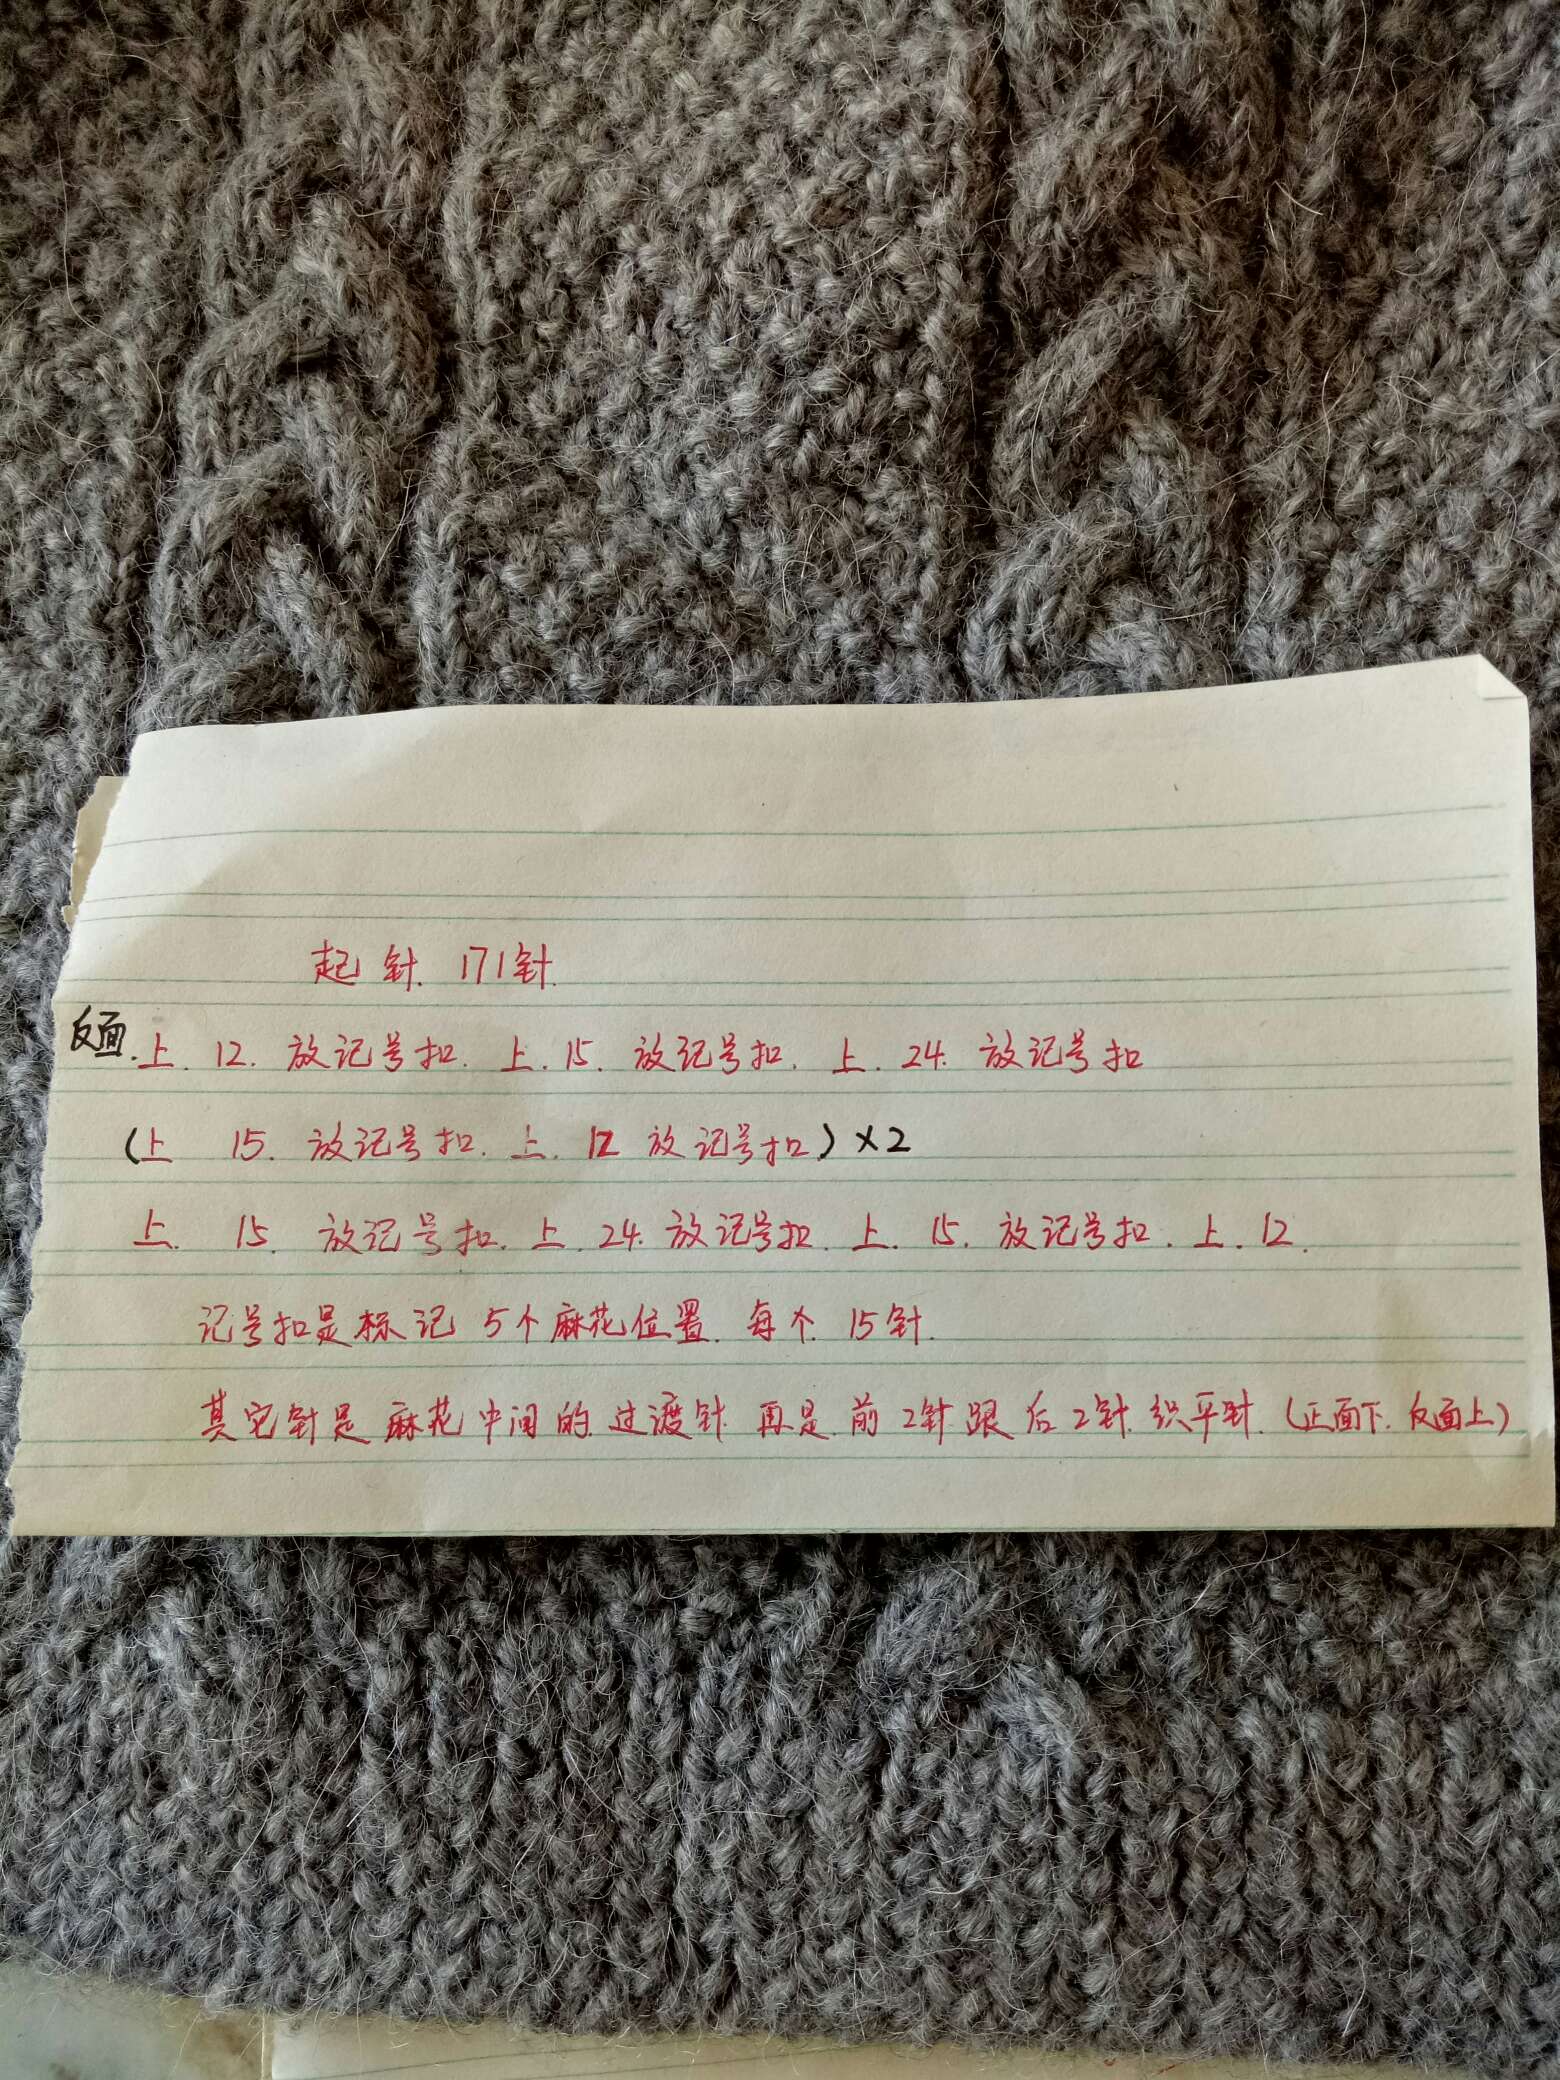 起针.171针.
反面.上.12.放记号扣.上.15.放记号扣.上.24.放记号扣
(上 15.放记号扣.上.12 放记号扣)×2
上. 15.放记号扣.上.24.放记号扣.上.15.放记号扣.上.12.
记号扣是标记5个麻花位置.每个.15针.
其它针是麻花中间的.过渡针.再是.前2针.跟后2针.织平针.(正面下.反面上)